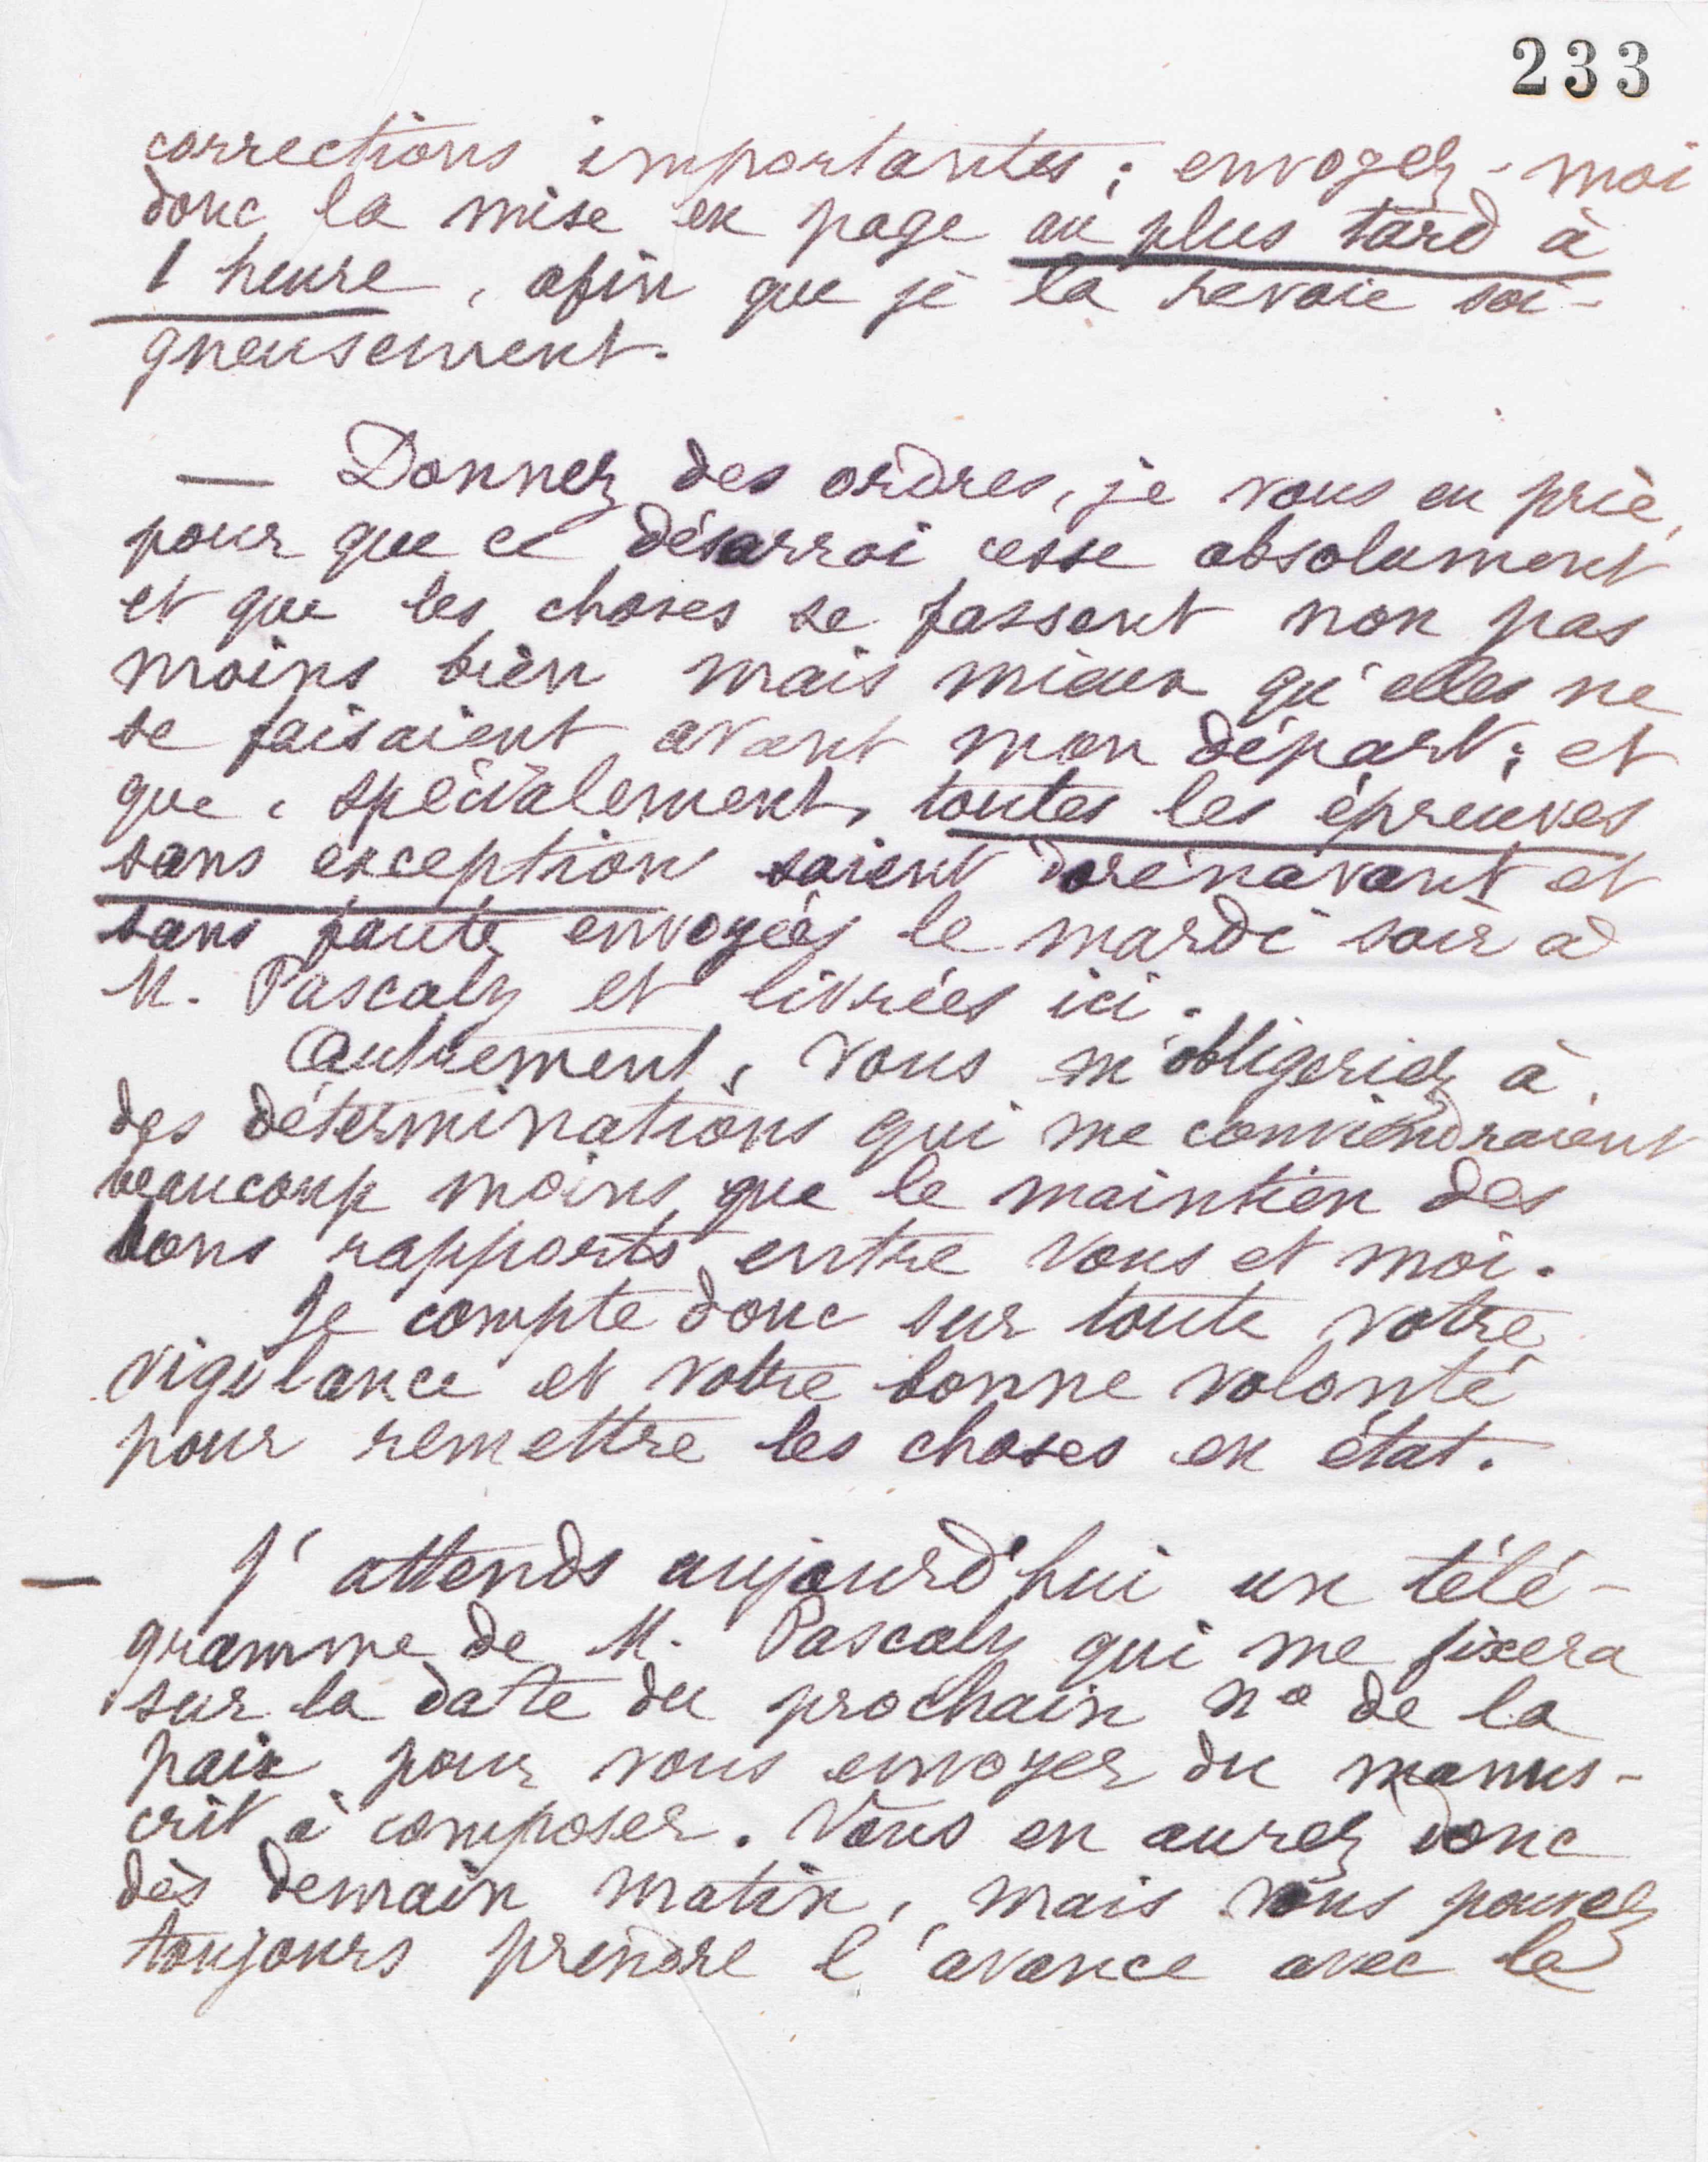 233
corrections importantes ; envoyez-moi
donc la mise en page au plus tard à
1 heure, afin que je la revoie soi-
gneusement.
— Donnez des ordres, je vous en prie,
pour que ce désarroi cesse absolument
et que les choses se passent non pas
moins bien mais mieux qu'elles ne
se faisaient avant mon départ ; et
que, spécialement, toutes les épreuves
sans exception soient dorénavant et
sans faute envoyées le mardi soir à
M. Pascaly et livrées ici.
Autrement, vous m'obligeriez à
des déterminations qui me conviendraient
beaucoup moins que le maintien des
bons rapports entre vous et moi.
Je compte donc sur toute votre
vigilance et votre bonne volonté
pour remettre les choses en état.
— J'attends aujourd'hui un télé-
gramme de M. Pascaly qui me fixera
sur la date du prochain no de la
paix pour vous envoyer du manus-
crit à composer. Vous en aurez donc
dès demain matin, mais vous pouvez
toujours prendre l'avance avec le